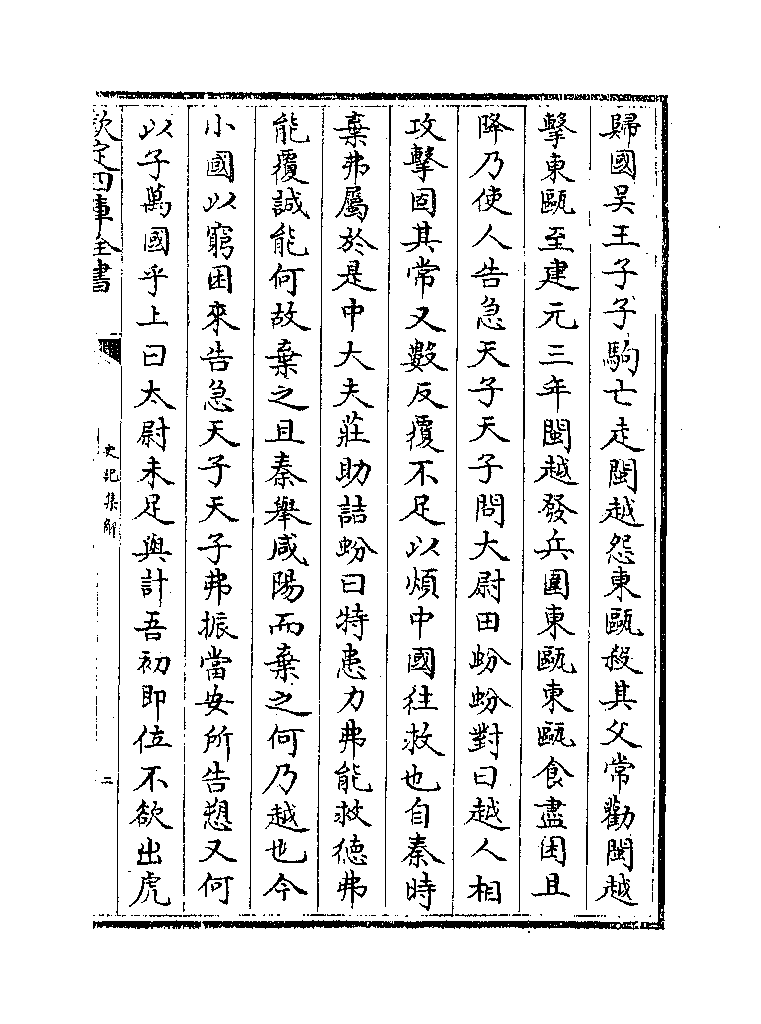 歸國吴王子子駒亡走閩越怨東甌殺其父常勸閩越
擊東甌至建元三年閩越發兵圍東甌東甌食盡困且
降乃使人告急天子天子問大尉田蚡蚡對曰越人相
攻擊固其常又數反覆不足以煩中國往救也自秦時
棄弗屬於是中大夫莊助詰蚡曰特患力弗能救德弗
能覆誠能何故棄之且秦舉咸陽而棄之何乃越也今
小國以窮困來告急天子天子弗振當安所告愬又何
以子萬國乎上曰太尉未足與計吾初即位不欲出虎
欽定四庫全書
史記集解
二